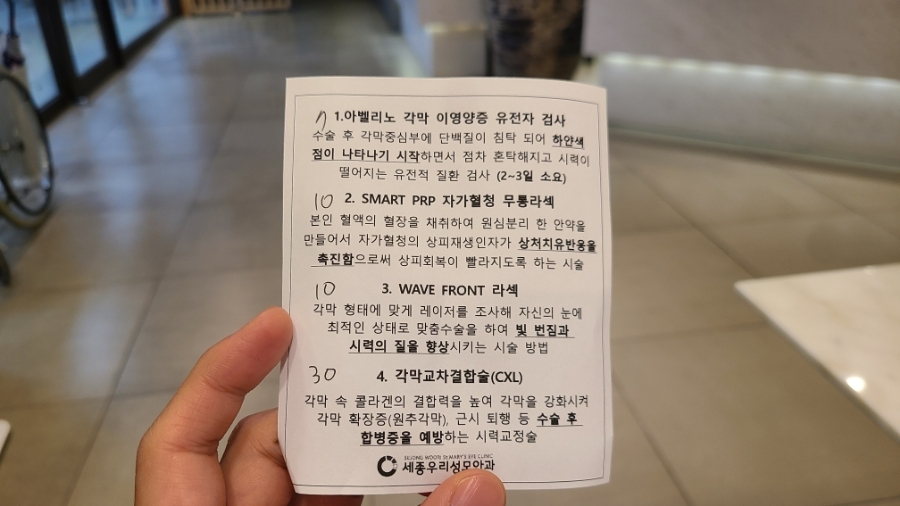 7 1.아벨리노 각막 이영양증 유전자 검사
수술 후 각막중심부에 단백질이 침탁 되어 하얀색
점이 나타나기 시작하면서 점차 혼탁해지고 시력이
떨어지는 유전적 질환 검사 (2~3일 소요)
10 2. SMART PRP 자가혈청 무통라섹
본인 혈액의 혈장을 채취하여 원심분리 한 안약을
만들어서 자가혈청의 상피재생인자가 상처치유반응을
촉진함으로써 상피회복이 빨라지도록 하는 시술
10 3. WAVE FRONT 라섹
각막 형태에 맞게 레이저를 조사해 자신의 눈에
최적인 상태로 맞춤수술을 하여 빛 번짐과
시력의 질을 향상시키는 시술 방법
30 4. 각막교차결합술(CXL)
각막 속 콜라겐의 결합력을 높여 각막을 강화시켜
각막 확장증(원추각막), 근시 퇴행 등 수술 후
합병증을 예방하는 시력교정술
SEJONG WOORI St.MARY'S EYE CLINIC
세종우리성모안과